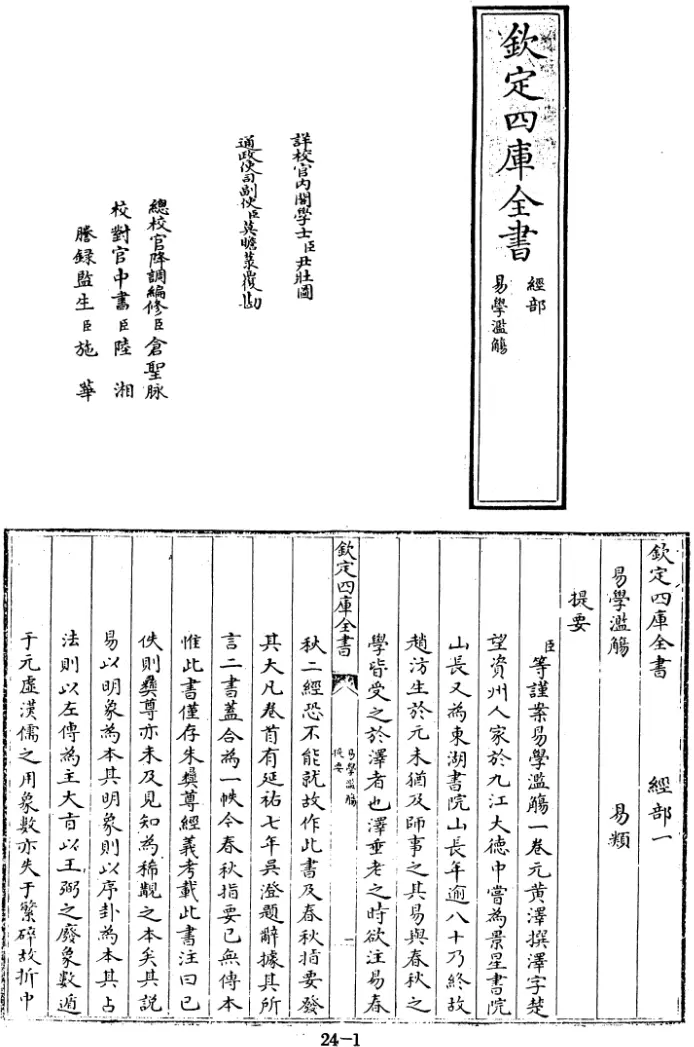 欽定四庫全書
經部
易學濫觴
詳校官內閣學士臣尹壯圖
通政使司副使臣莫瞻菉覆勘
總校官降調編修臣倉聖脉
校對官中書臣陸湘
謄録監生臣施華
欽定四庫全書 經部一
易學濫觴 易類
提要
臣等謹案易學濫觴一卷元黃澤撰澤字楚
望資州人家於九江大德中嘗為景星書院
山長又為東湖書院山長年逾八十乃終故
趙汸生於元末猶及師事之其易與春秋之
學皆受之於澤者也澤垂老之時欲注易春
欽定四庫全書 易學濫觴 提要 一
秋二經恐不能就故作此書及春秋指要發
其大凡卷首有延祐七年吳澄題辭據其所
言二書蓋合為一帙今春秋指要已無傳本
惟此書僅存朱彞尊經義考載此書注曰已
佚則彞尊亦未及見知為稀覯之本矣其說
易以明象為本其明象則以序卦為本其占
法則以左傳為主大旨以王弼之廢象數遁
于元虛漢儒之用象數亦失于繁碎故折中
24-1